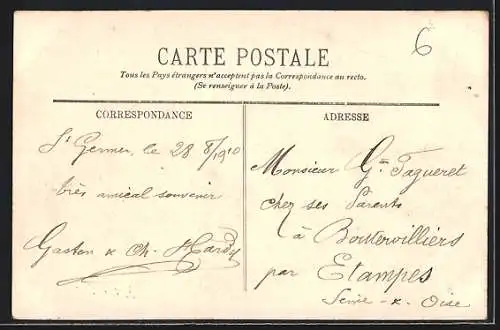 6
CARTE POSTALE
Tous les Pays étrangers n'acceptent pas la Correspondance au recto.
(Se renseigner à la Poste).
CORRESPONDANCE
St Germer, le 28 8/1910
très amical souvenir
Gaston & Ch. Hardy
ADRESSE
Monsieur Gton Fagueret
chez ses Parents
à Boutervilliers
par Etampes
Seine-&-Oise